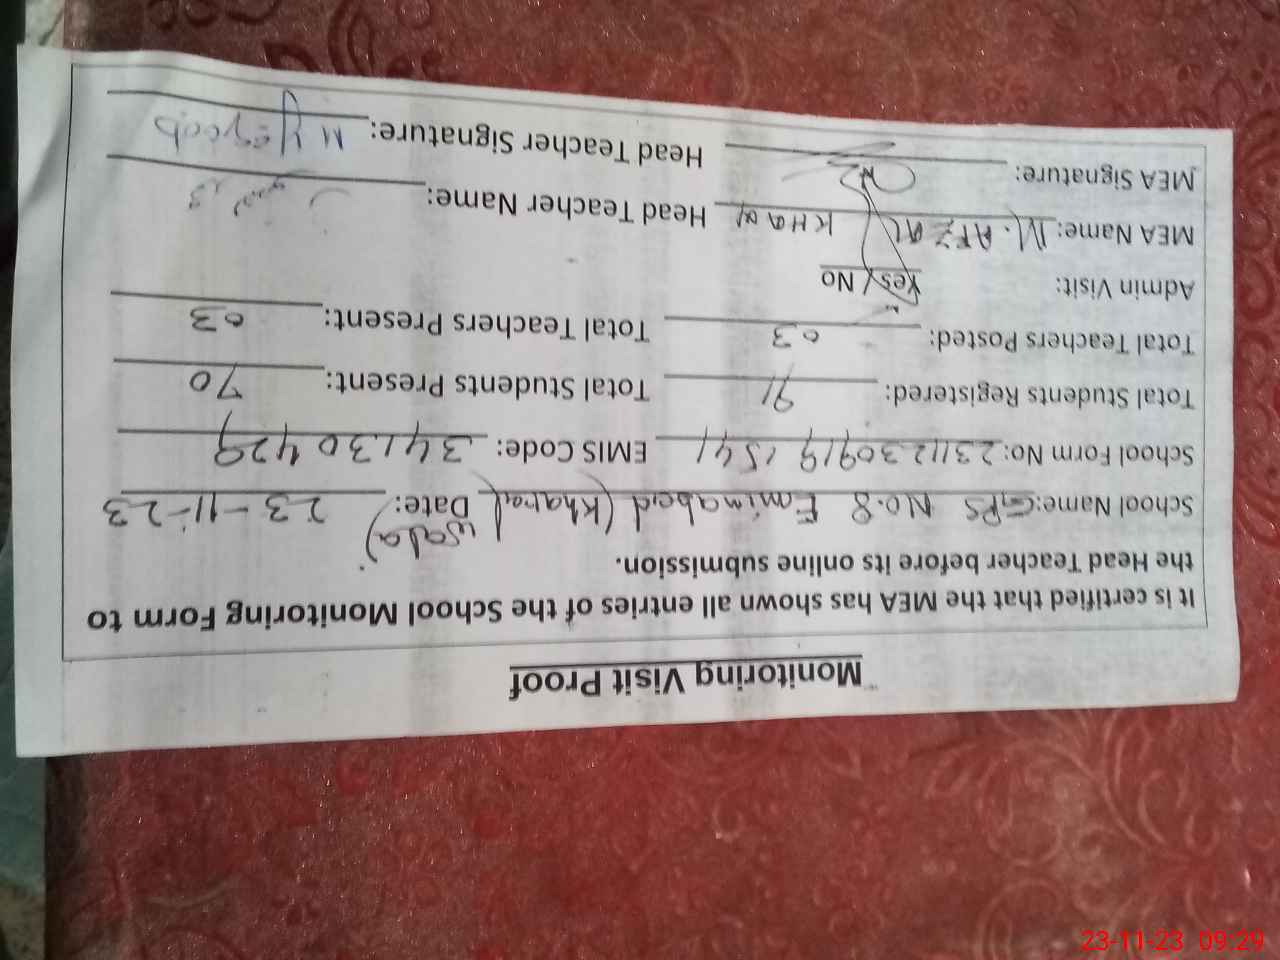 Monitoring Visit Proof
It is certified that the MEA has shown all entries of the School Monitoring Form to
the Head Teacher before its online submission.
School Name: GPS No.8 Eminabad (Kharal wala) Date: 23-11-23
School Form No: 2311230919 1541 EMIS Code: 34130429
Total Students Registered: 91 Total Students Present: 70
Total Teachers Posted: 03 Total Teachers Present: 03
Admin Visit: Yes / No
MEA Name: M. AFZAL KHAN Head Teacher Name:
MEA Signature: Head Teacher Signature: M Yaqoob
23-11-23 09:29